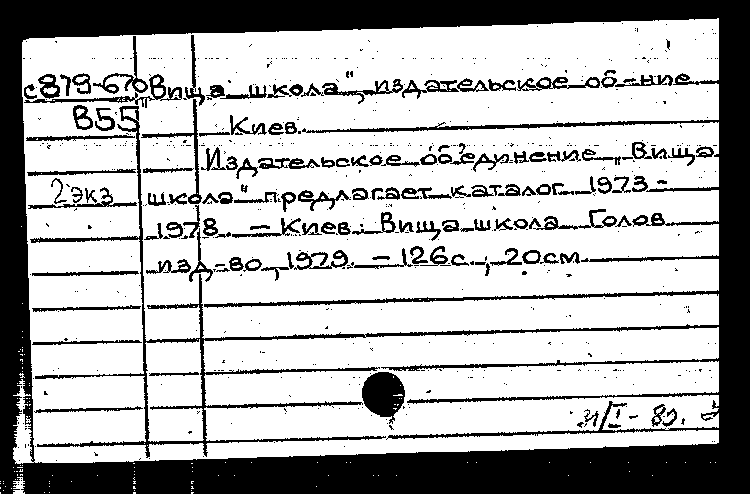 с879-670 „Вища школа", издательское об-ние
В55 Киев.
Издательское объединение „Вища
2экз школа" предлагает каталог 1973-
1978. – Киев: Вища школа Голов.
изд-во, 1979. – 126с.; 20см
31/I-80.